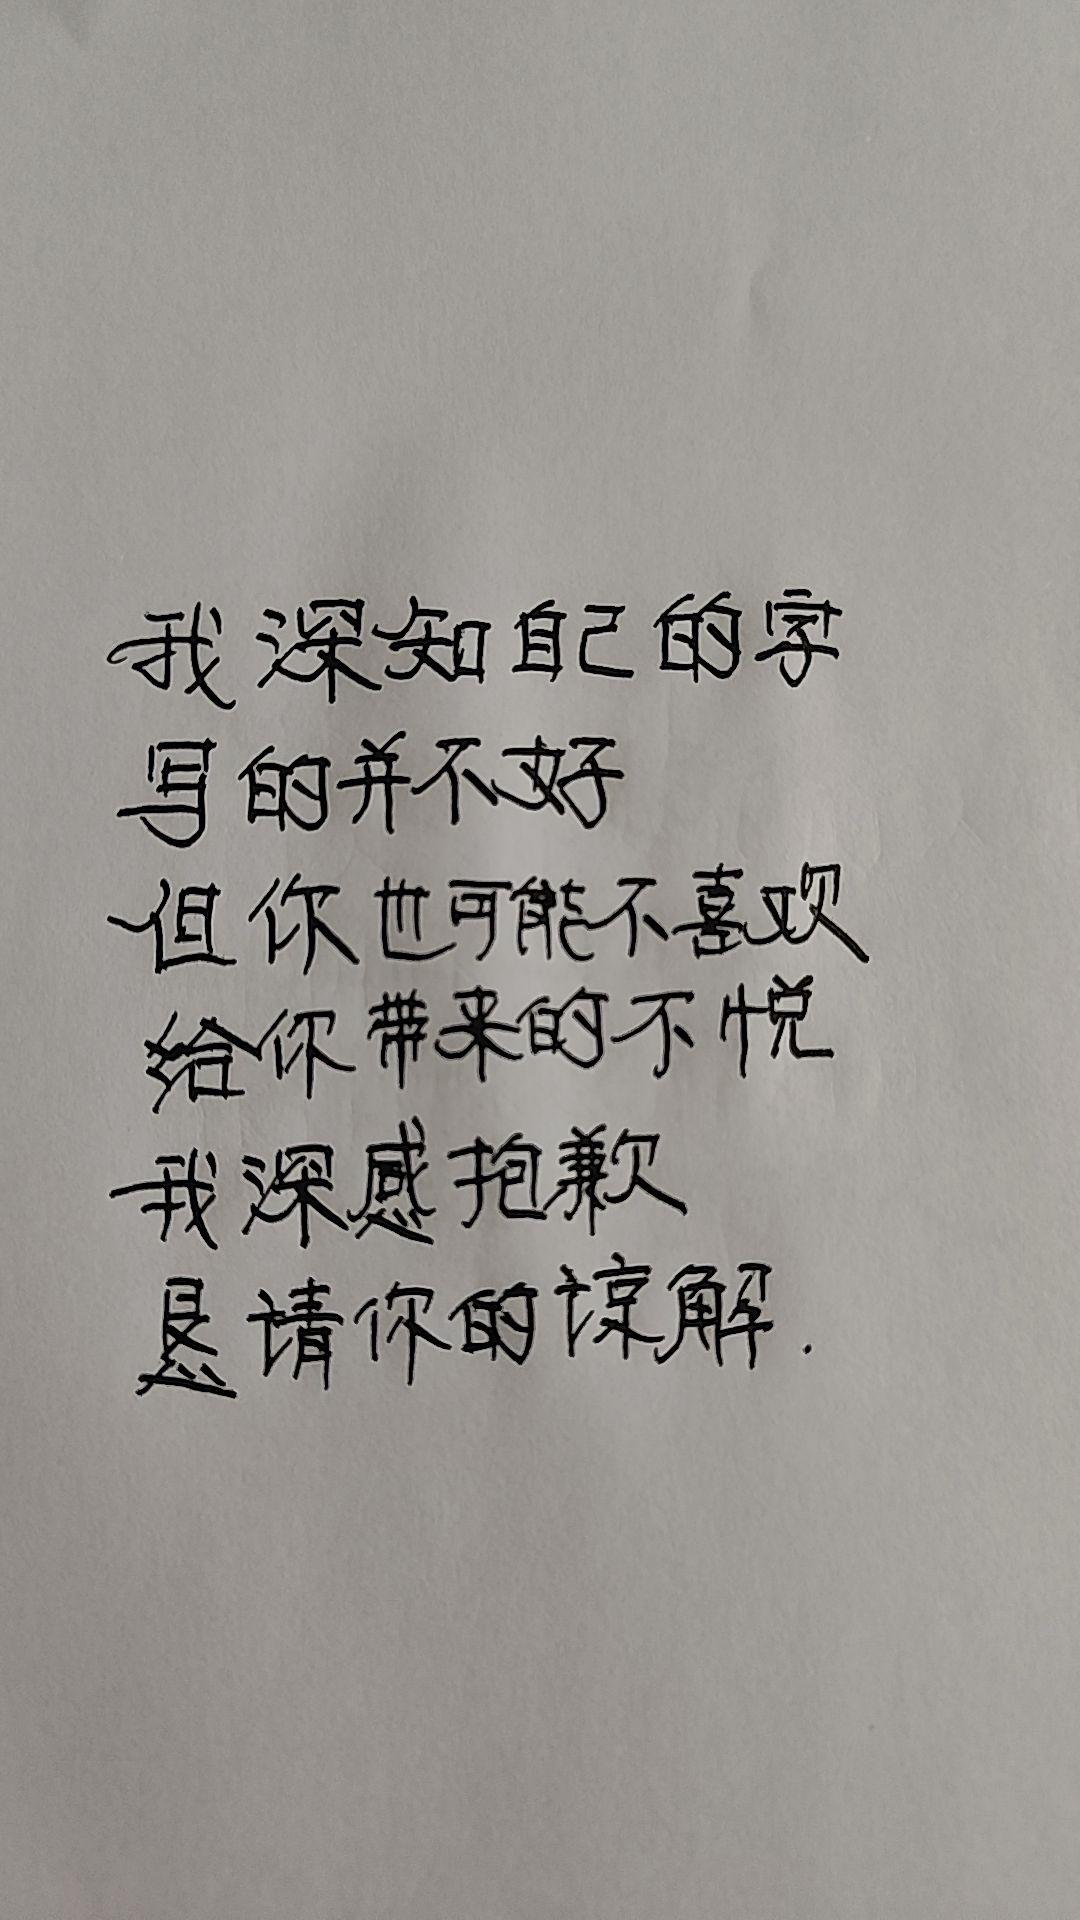 我深知自己的字
写的并不好
但你也可能不喜欢
给你带来的不悦
我深感抱歉
恳请你的谅解.